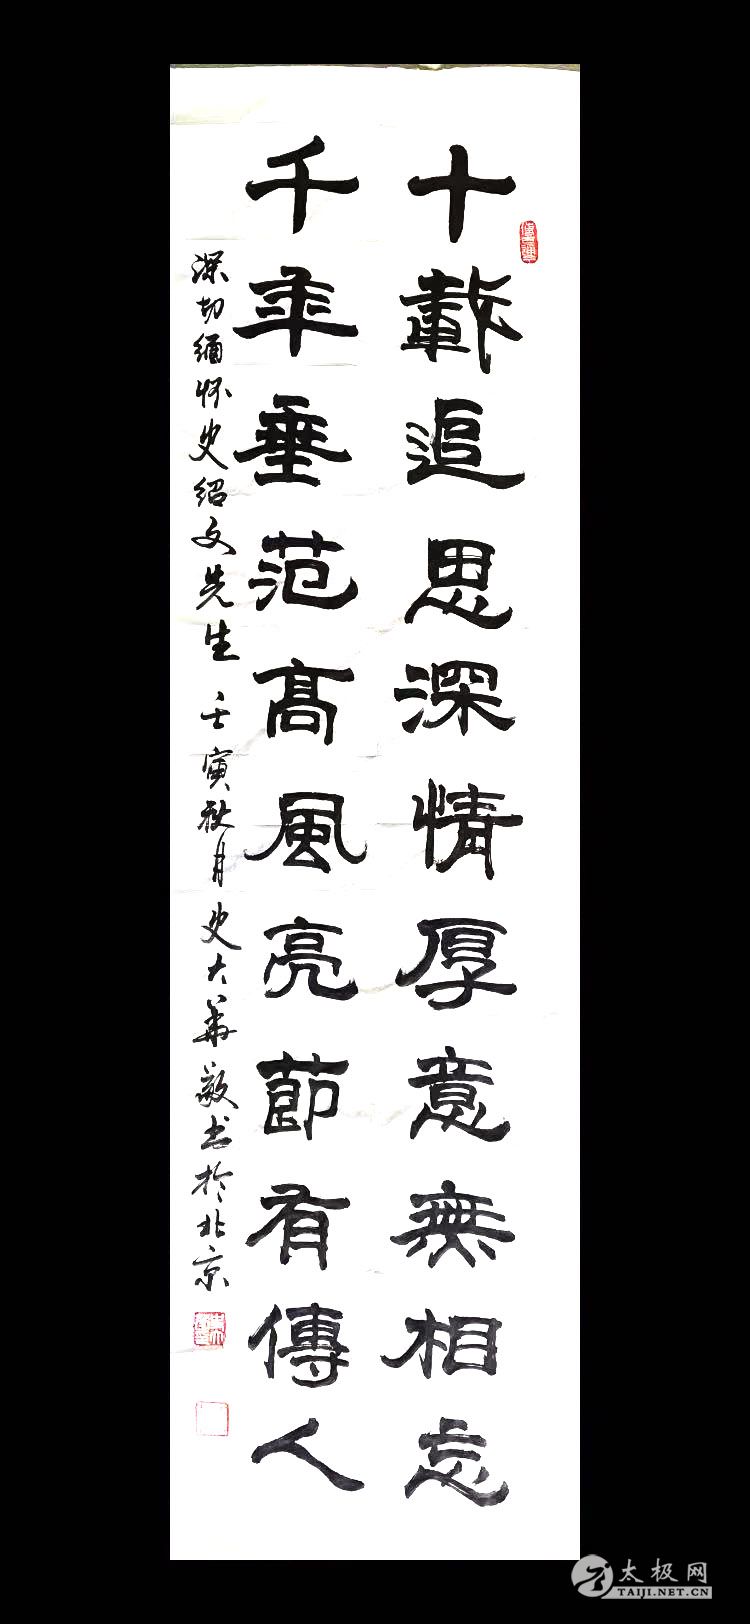 十載追思深情厚意無相忘
千年垂范高風亮節有傳人
深切緬怀史绍文先生 壬寅秋月史大華敬书於北京
太极网
TAIJI.NET.CN